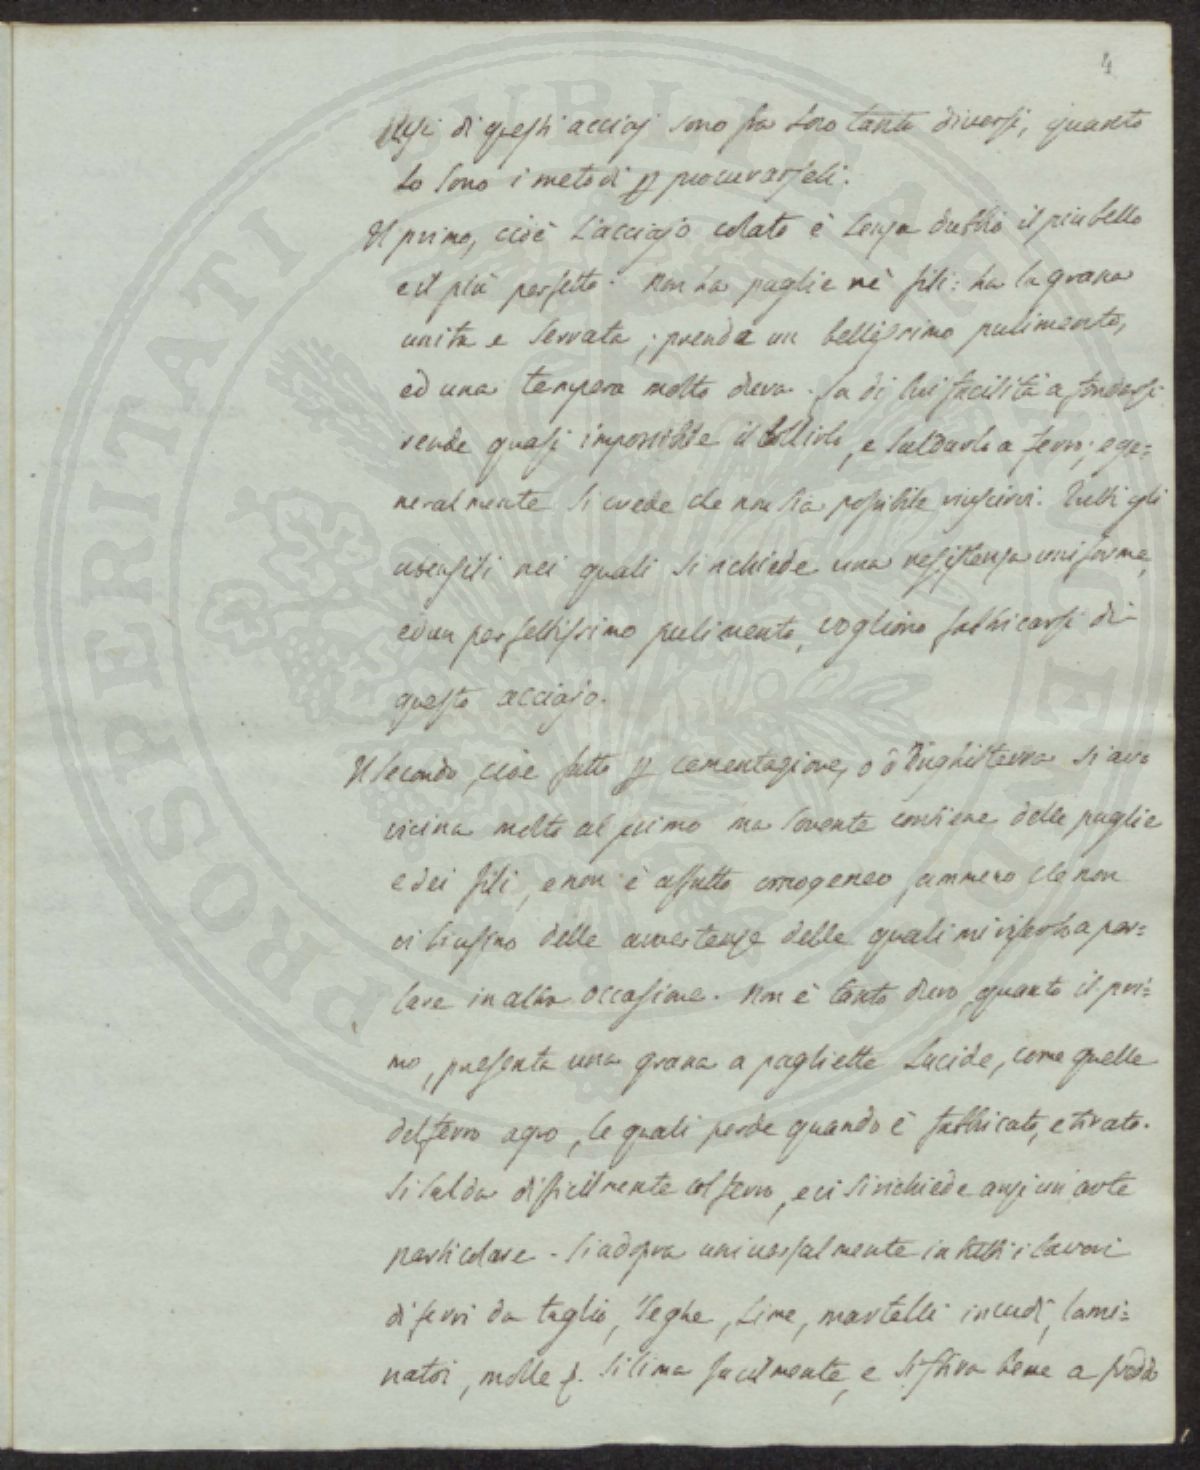 4
Usi di questi acciaj sono fra loro tanto diversi, quanto
lo sono i metodi p procurarseli.
Il primo, cioè l'acciajo colato è senza dubbio il piu bello
e il più perfetto. Non ha paglie nè fili: ha la grana
unita e serrata; prende un bellissimo pulimento,
ed una tempera molto dura. La di lui facilità a fondersi
rende quasi impossibile il bollirlo, e saldarlo a ferro; e ge=
neralmente si crede che non sia possibile riuscirvi. Tutti gli
utensili nei quali si richiede una resistenza uniforme,
ed un perfettissimo pulimento, vogliono fabbricarsi di
questo acciajo.
Il secondo, cioè fatto p cementazione, o d'Inghilterra si avv
vicina molto al primo ma sovente contiene delle paglie
e dei fili, e non è affatto omogeneo, ammeno che non
vi si usino delle avvertenze delle quali mi riserbo a par=
lare in altra occasione. Non è tanto duro, quanto il pri=
mo, presenta una grana a pagliette lucide, come quelle
del ferro agro, le quali perde quando è fabbricato, e tirato.
Si salda difficilmente col ferro, e ci si richiede anzi un'arte
particolare. Si adopra universalmente in tutti i lavori
di ferri da taglio, seghe, lime, martelli incudi, lami=
natoi, molle &. Si lima facilmente, e si stira bene a freddo
PROSPERITATI PUBLICAE AUGENDAE